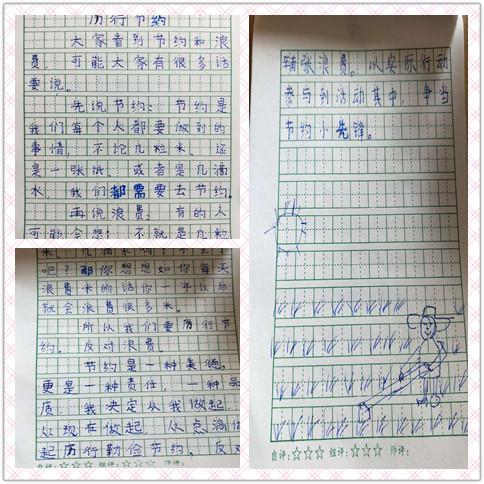 厉行节约
大家看到节约和浪
费，可能大家有很多话
要说。
先说节约：节约是
我们每个人都要做到的
事情，不论几粒米、还
是一张纸、或者是几滴
水，我们都需要去节约。
再说浪费：有的人
可能会想：不就是几粒
米、几滴水吗？不至于
吧？那你想想如你每天
浪费米的话你一年以后
就会浪费很多米。
所以我们要厉行节
约。反对浪费。
节约是一种美德，
更是一种责任，一种品
质，我决定从我做起，
从现在做起，从点滴做
起厉行勤俭节约，反对
自评：☆☆☆ 组评：☆☆☆ 师评：
铺张浪费。以实际行动
参与到活动其中，争当
节约小先锋。
自评：☆☆☆ 组评：☆☆☆ 师评：